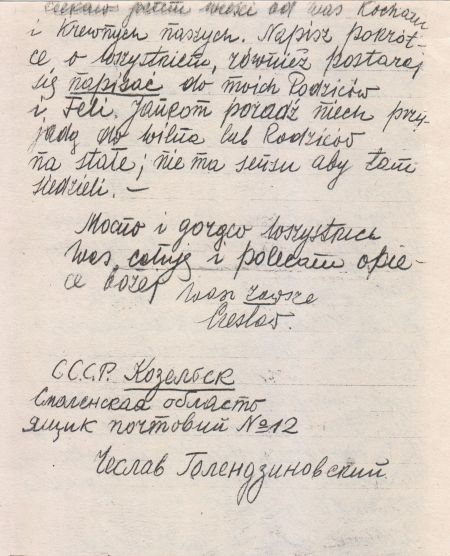 ciekaw jestem wieści od was Kochani
i Krewnych naszych. Napisz pokrót-
ce o wszystkiem, również postaraj
się napisać do moich Rodziców
i Feli. Jańcom poradź niech przy-
jadą do wilna lub Rodziców
na stałe; nie ma sensu aby tam
siedzieli. —
Mocno i gorąco wszystkich
was całuję i polecam opie-
ce bożej
wasz zawsze
Czesław.
С.С.С.Р. Козельск
Смоленская область
ящик почтовий № 12
Чеслав Голендзиновский